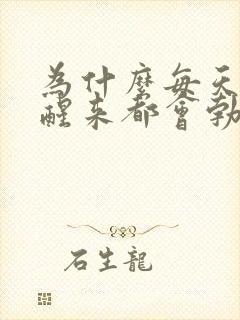 為什麼每天
醒來都會勃
石生龍